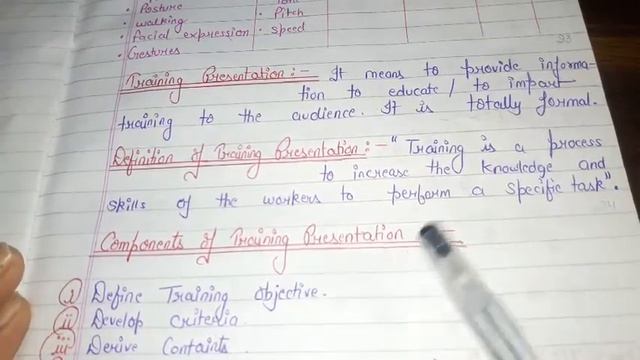 • Posture
• walking • Pitch
• facial expression • speed
• Gestures
23
Training Presentation:- It means to provide informa-
tion to educate/ to impart
training to the audience. It is totally formal.
Definition of Training Presentation:- "Training is a process
to increase the knowledge and
skills of the workers to perform a specific task".
Components of Training Presentation
i Define Training objective.
ii Develop criteria
iii Derive Containts